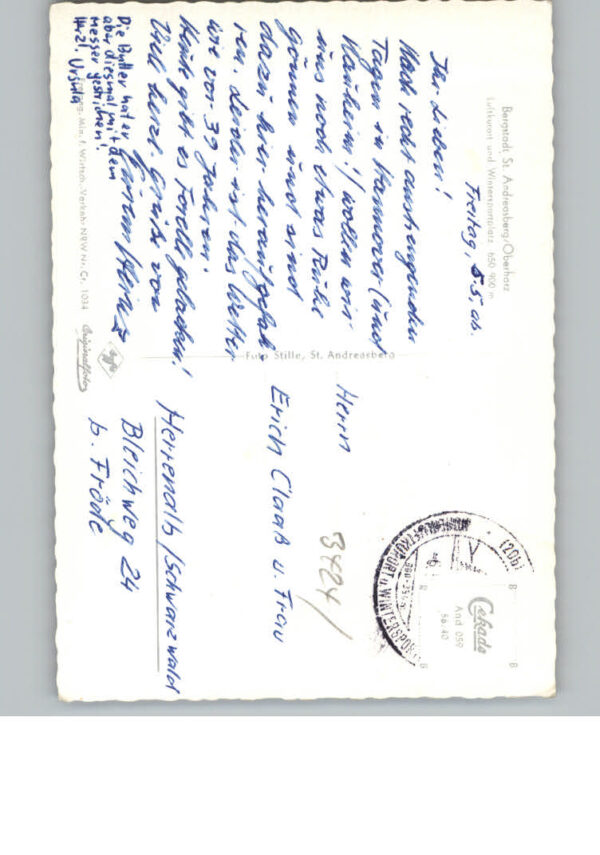 Bergstadt St. Andreasberg/Oberharz
Luftkurort und Wintersportplatz 650-900 m
Freitag, 5.5, ab.
Ihr Lieben!
Nach recht anstrengenden
Tagen in Hannover (und
Nauheim!) wollen wir
uns noch etwas Ruhe
gönnen und sind
dazu hier heraufgefah
ren. Leider ist das Wetter
wie vor 39 Jahren.
Heute gibt es Forelle
Viele herzl. Grüße von
Heinz
Die Butter hat er
aber diesmal mit dem
Messer gestrichen!
Hzl. Ursula
Min. f. Wirtsch. Verkehr NRW Nr. Cr. 1034
Agfa
Originalfoto
Foto Stille, St. Andreasberg
Herrn
Erich Claaß u. Frau
Herrenalb/Schwarzwald
Bleichweg 24
b. Fröde
3424/
(20b)
Cekade
And 059
56.40
B
B
B